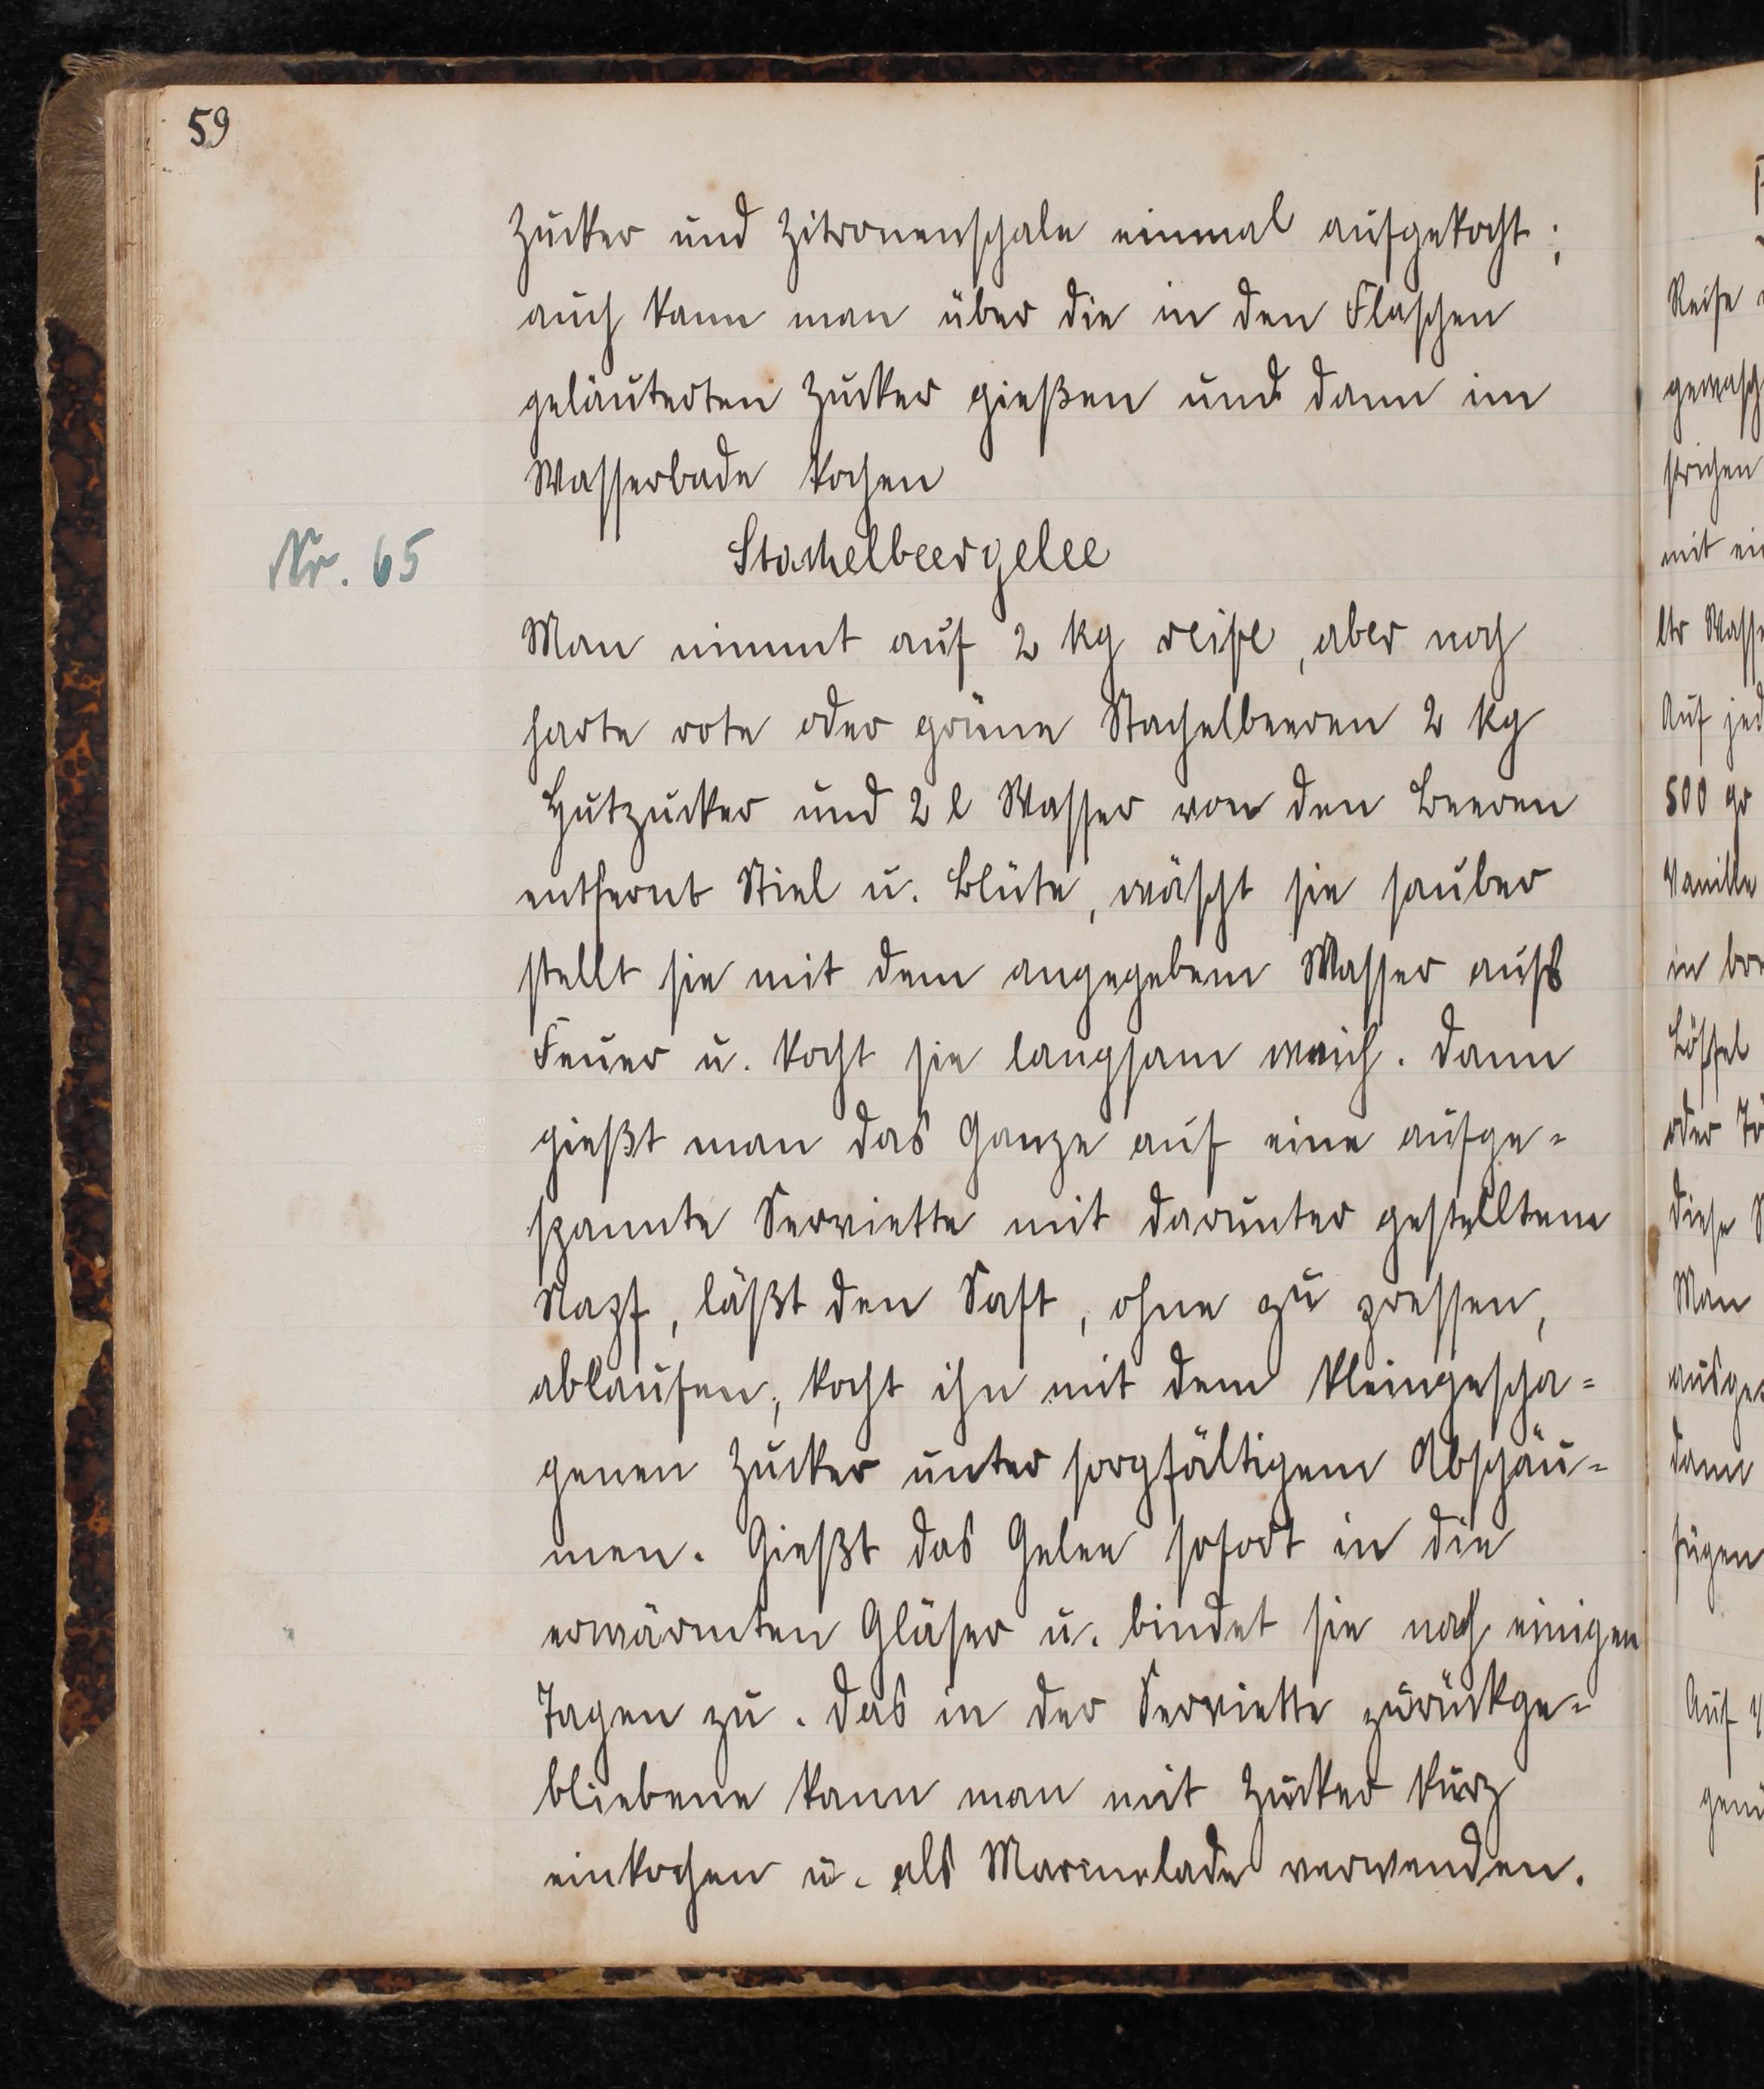 59
Zucker und Zitronenschale einmal aufgekocht;
auch kann man über die in den Flaschen
geläuterten Zucker gießen und dann im
Wasserbade kochen
Nr. 65
Stachelbeergelee
Man nimmt auf 2 kg reife, aber noch
harte rote oder grüne Stachelbeeren 2 kg
Hutzucker und 2 l Wasser von den Beeren
entfernt Stiel u. Blüte, wäscht sie sauber
stellt sie mit dem angegebem Wasser aufs
Feuer u. kocht sie langsam weich. Dann
gießt man das Ganze auf eine aufge=
spannte Serviette mit darunter gestelltem
Napf, läßt den Saft, ohne zu pressen,
ablaufen, kocht ihn mit dem kleingescha=
genen Zucker unter sorgfältigem Abschäu=
men. Gießt das Gelee sofort in die
erwärmten Gläser u. bindet sie nach einigen
Tagen zu. Das in der Serviette zurückge=
bliebene kann man mit Zucker kurz
einkochen u. als Marmelade verwenden.
Reife
mit
ltr
Auf
500 gr
Vanille
in
Löffel
oder
diese
Man
dann
fügen
Auf